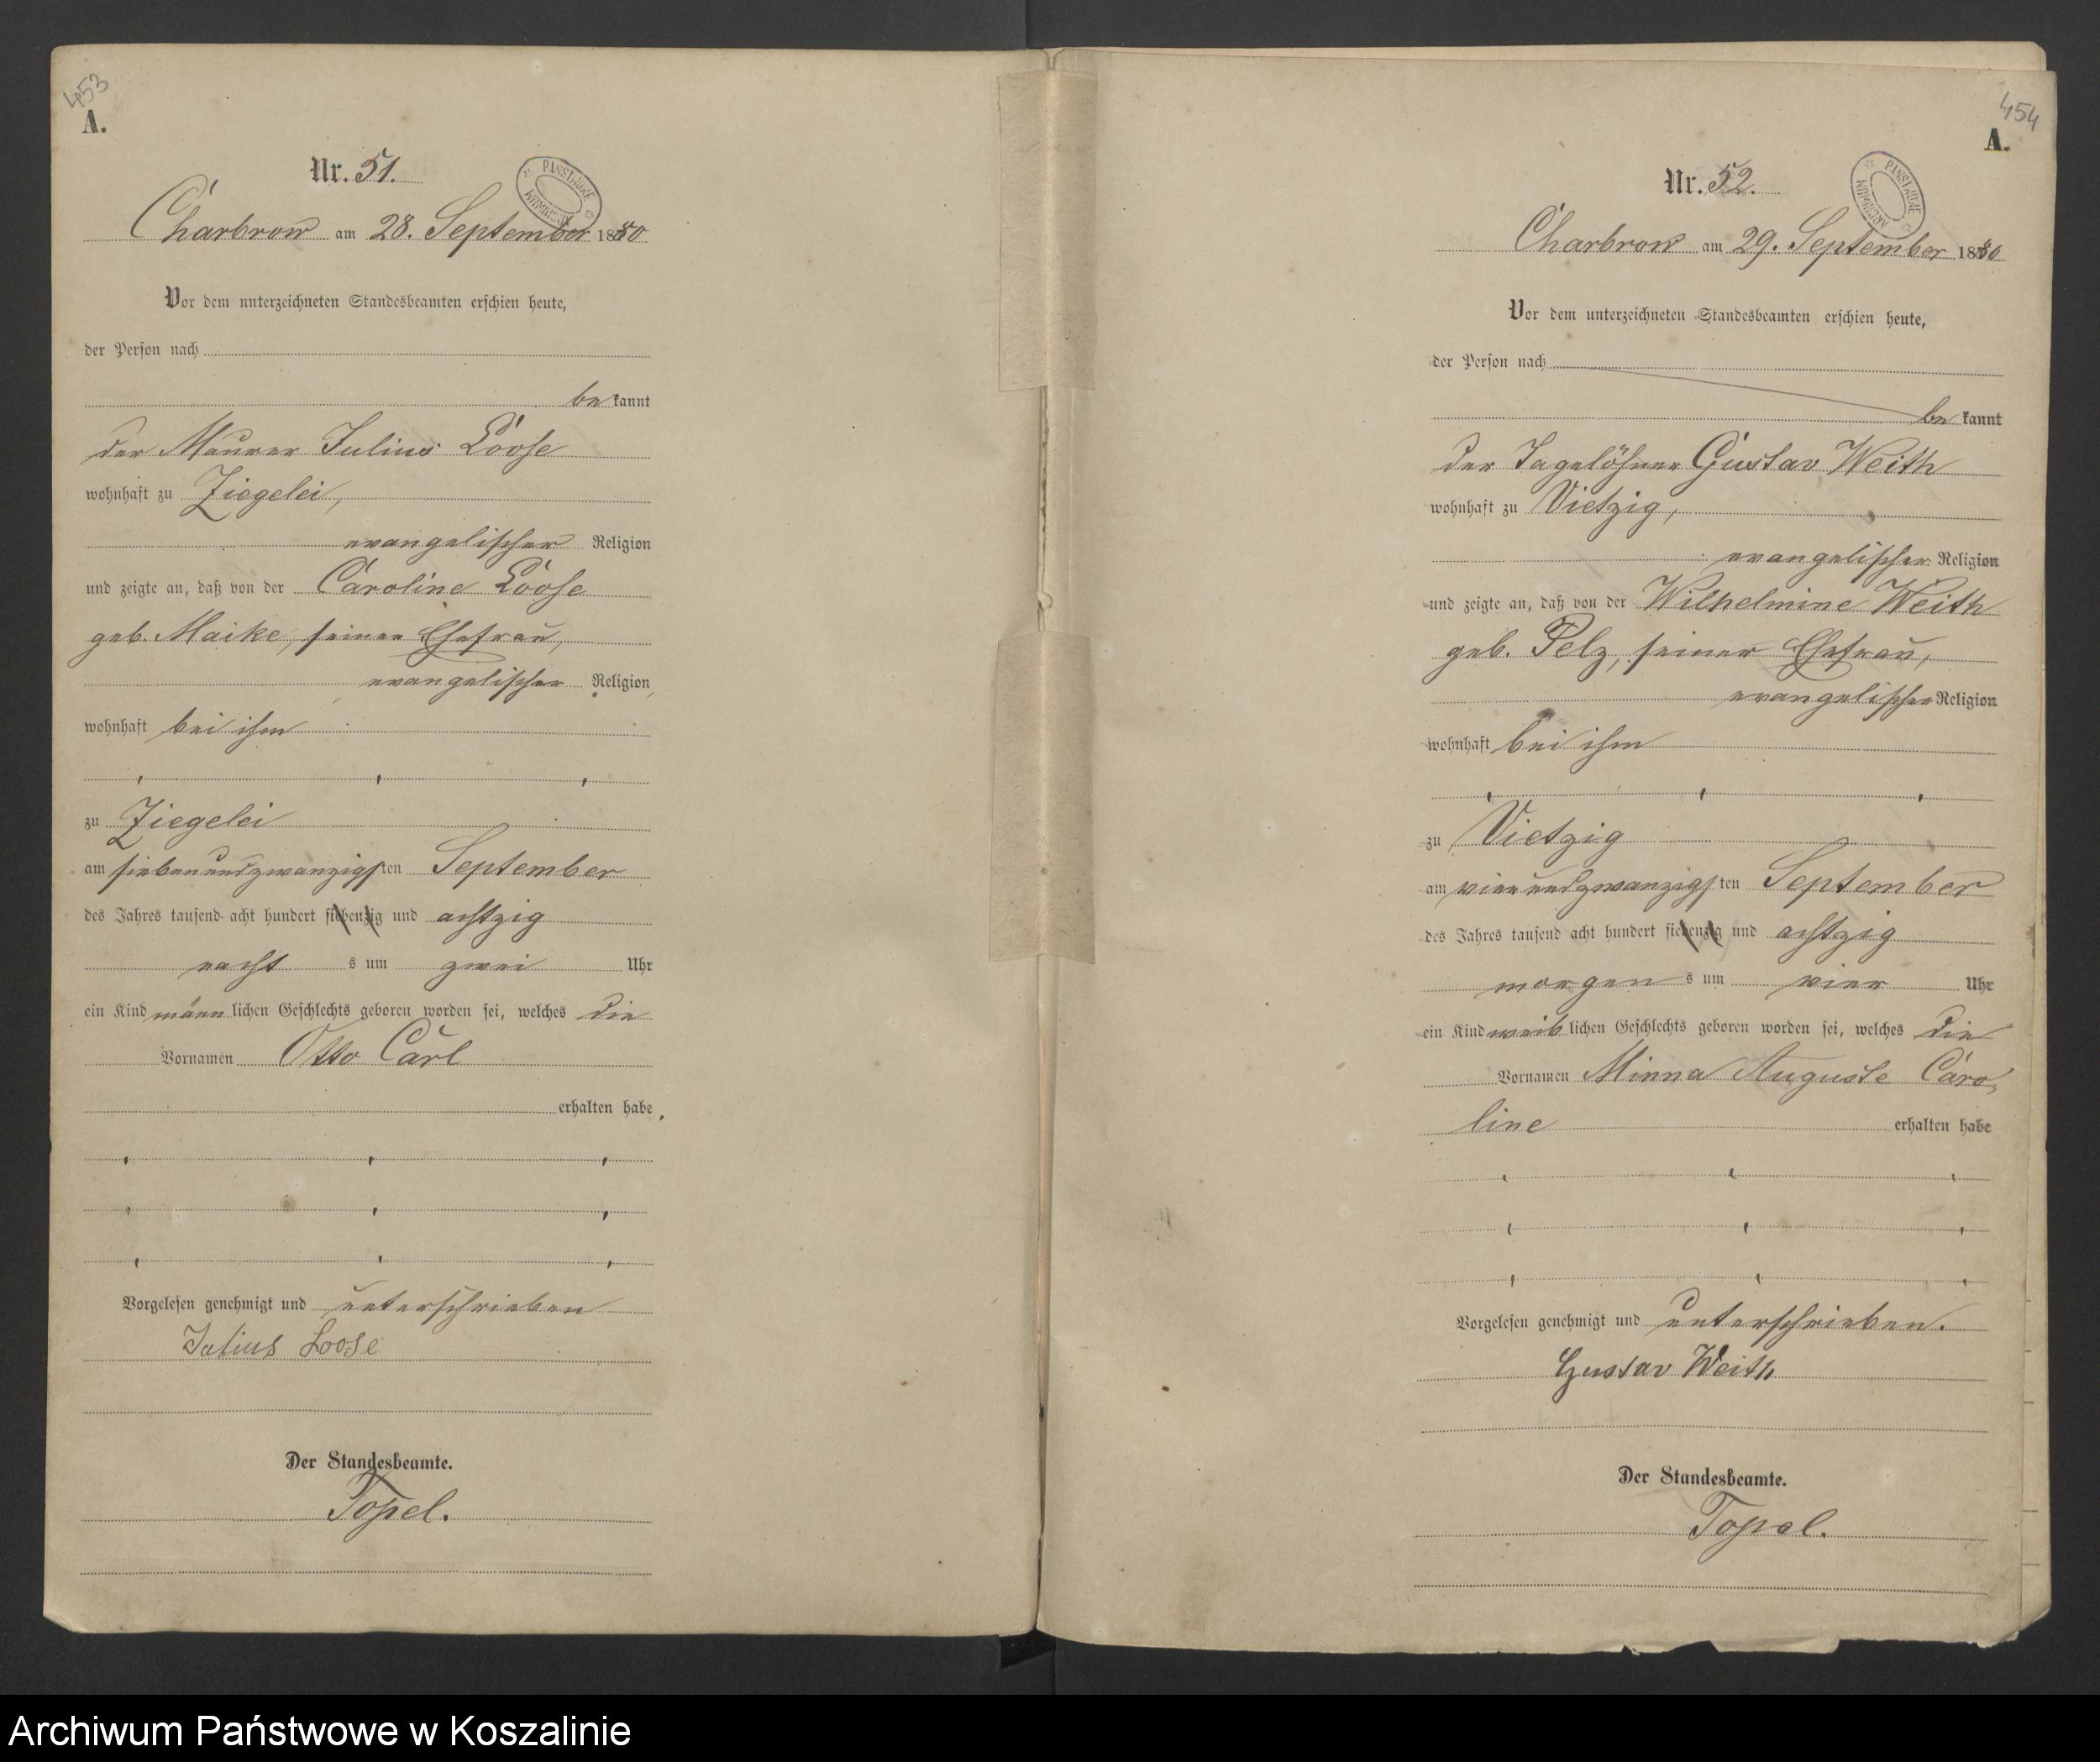 453
A.
Nr. 51.
PAŃSTWOWE ARCHIWUM
Charbrow am 28. September 1880
Vor dem unterzeichneten Standesbeamten erschien heute,
der Person nach
bekannt
der Maurer Julius Loose
wohnhaft zu Ziegelei,
evangelischer Religion
und zeigte an, daß von der Caroline Loose
geb. Maike, seiner Ehefrau,
evangelischer Religion,
wohnhaft bei ihm
zu Ziegelei
am siebenundzwanzigsten September
des Jahres tausend acht hundert siebenzig und achtzig
nachts um zwei Uhr
ein Kind männlichen Geschlechts geboren worden sei, welches die
Vornamen Otto Carl
erhalten habe,
Vorgelesen genehmigt und unterschrieben
Julius Loose
Der Standesbeamte.
Topel.
454
A.
Nr. 52.
PAŃSTWOWE ARCHIWUM
Charbrow am 29. September 1880
Vor dem unterzeichneten Standesbeamten erschien heute,
der Person nach
bekannt
der Tagelöhner Gustav Weith
wohnhaft zu Vietzig,
evangelischer Religion
und zeigte an, daß von der Wilhelmine Weith
geb. Pelz, seiner Ehefrau,
evangelischer Religion
wohnhaft bei ihm
zu Vietzig
am vierundzwanzigsten September
des Jahres tausend acht hundert siebenzig und achtzig
morgens um vier Uhr
ein Kind weiblichen Geschlechts geboren worden sei, welches die
Vornamen Minna Auguste Caro-
line erhalten habe
Vorgelesen genehmigt und unterschrieben.
Gustav Weith
Der Standesbeamte.
Topel.
Archiwum Państwowe w Koszalinie